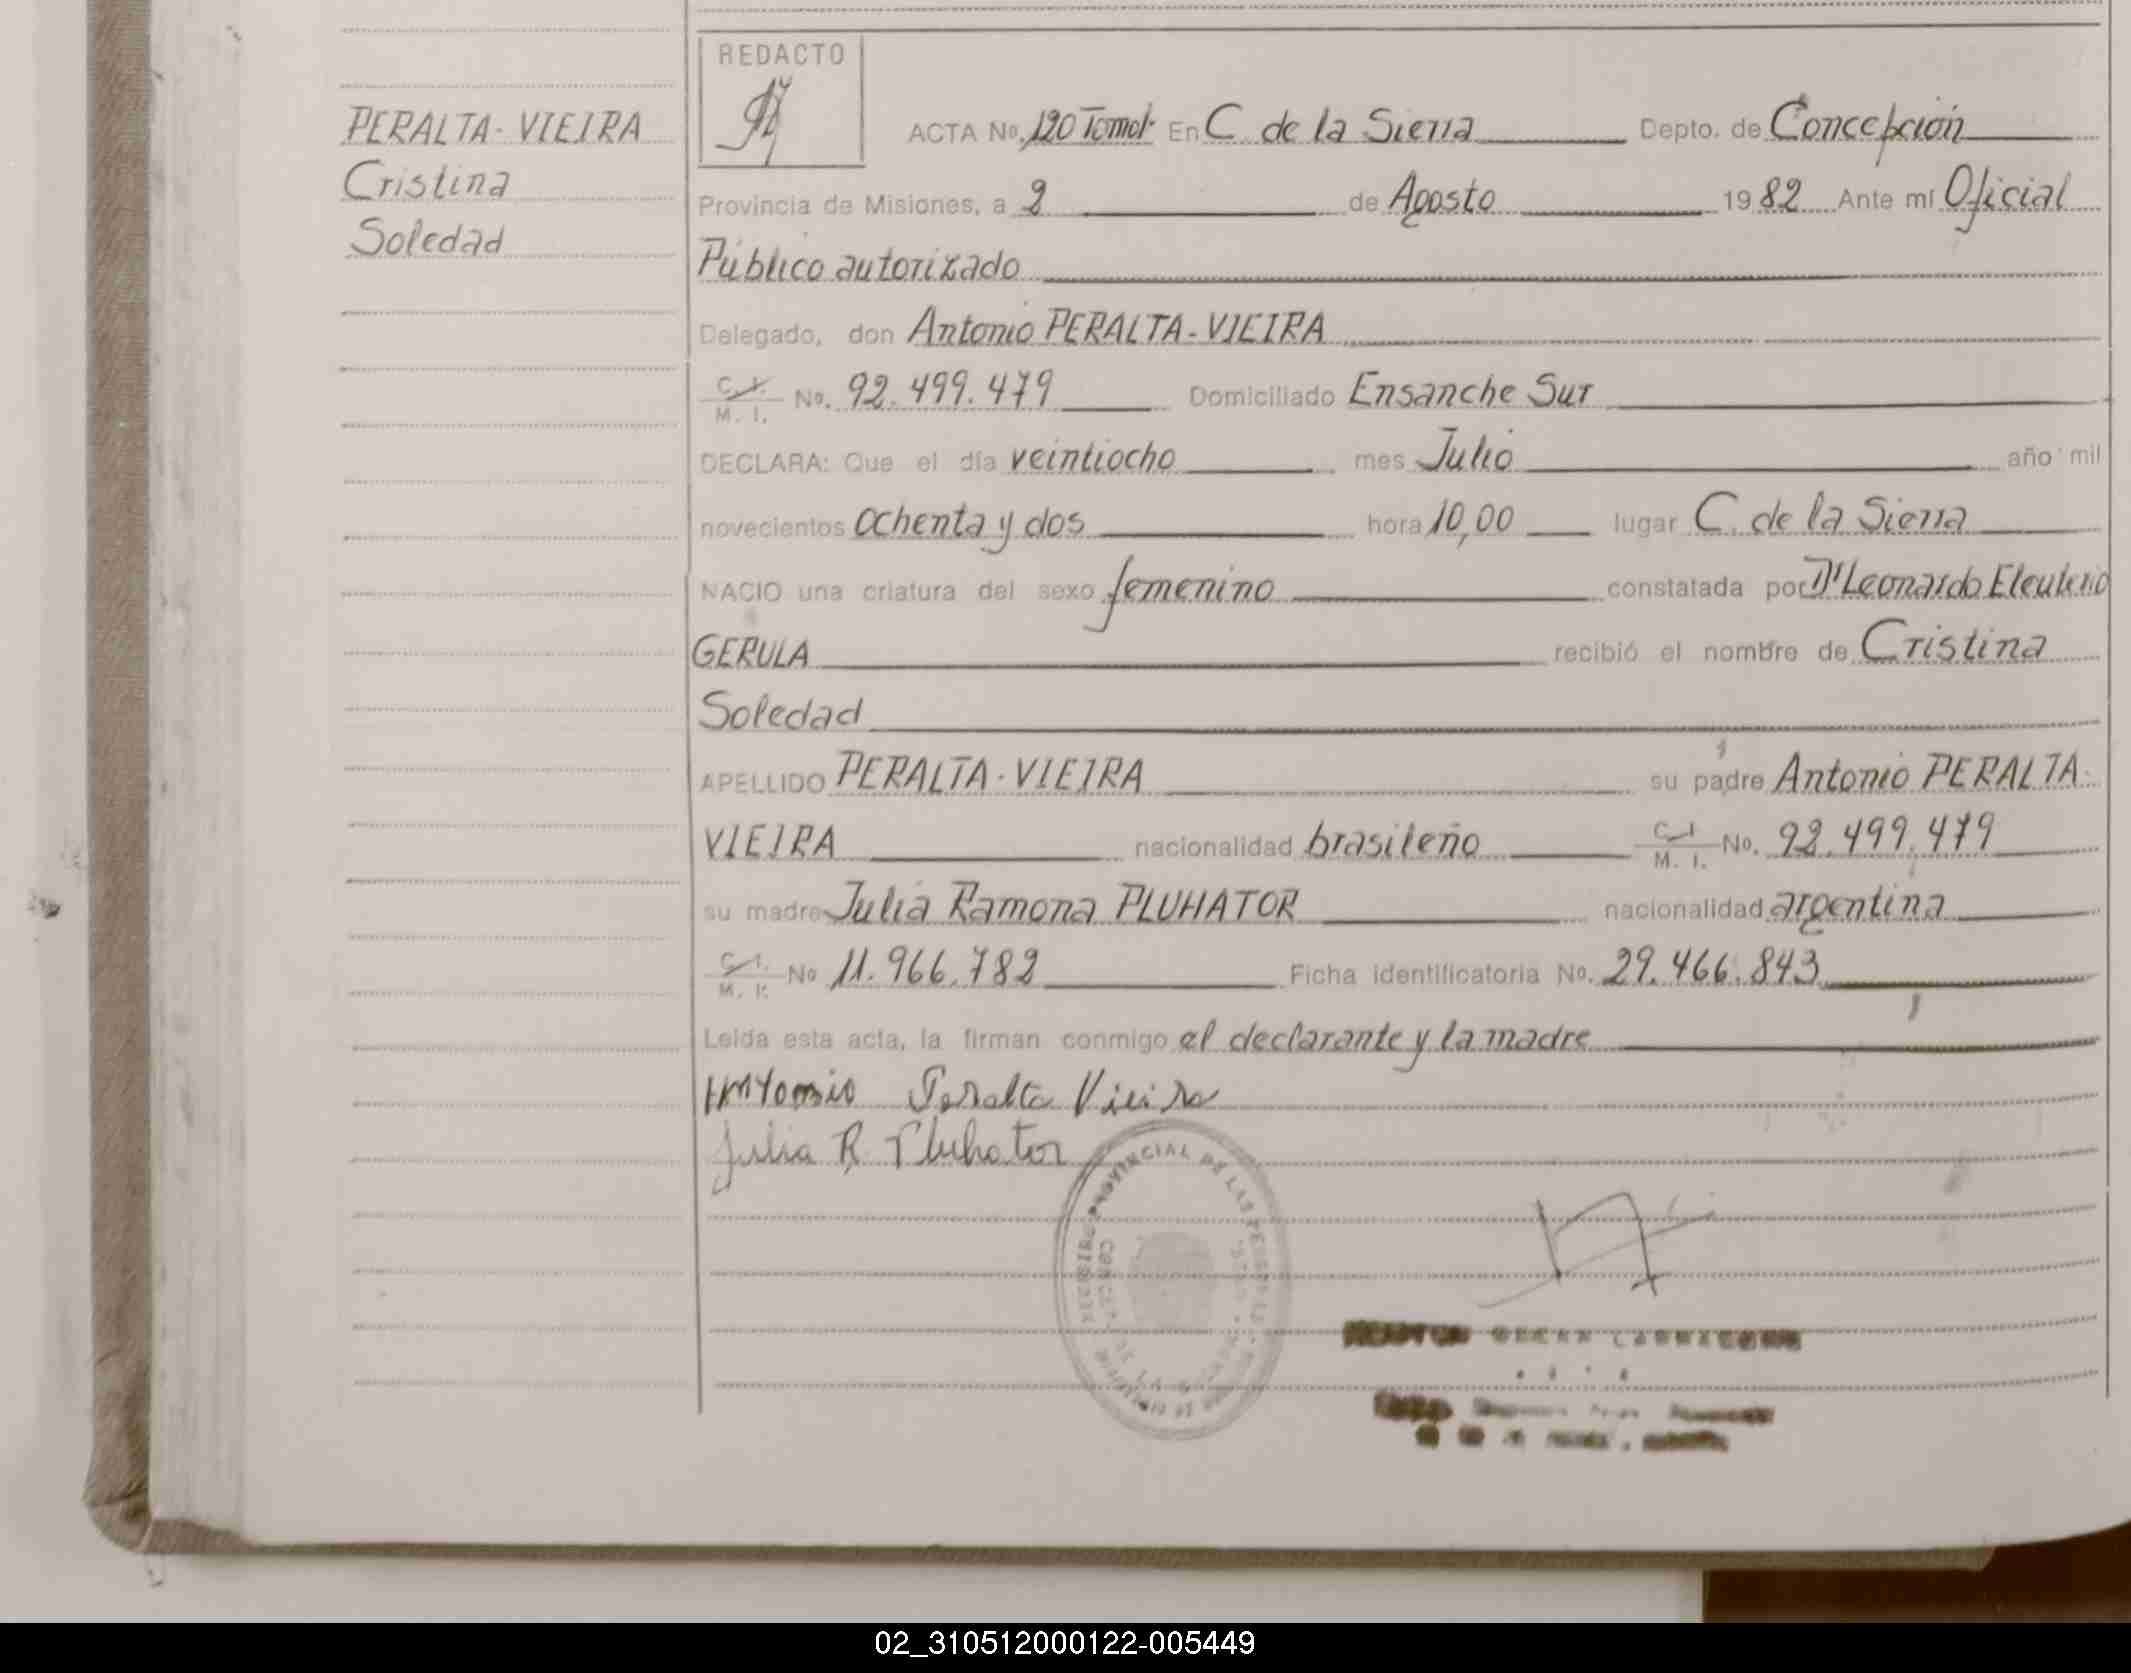 REDACTO
PERALTA-VIEIRA
Cristina
Soledad
ACTA No. 120 Tomo I. En C. de la Sierra Depto. de Concepción
Provincia de Misiones, a 2 de Agosto 1982 Ante mí Oficial
Público autorizado
Delegado, don Antonio PERALTA-VIEIRA
C. I. / M. I. No. 92.499.479 Domiciliado Ensanche Sur
DECLARA: Que el día veintiocho mes Julio año mil
novecientos ochenta y dos hora 10,00 lugar C. de la Sierra
NACIO una criatura del sexo femenino constatada por Dr Leonardo Eleuterio
GERULA recibió el nombre de Cristina
Soledad
APELLIDO PERALTA-VIEIRA su padre Antonio PERALTA-
VIEIRA nacionalidad brasileño C. I. / M. I. No. 92.499.479
su madre Julia Ramona PLUHATOR nacionalidad argentina
C. I. / M. I. No 11.966.782 Ficha identificatoria No. 29.466.843
Leída esta acta, la firman conmigo el declarante y la madre
Antonio Peralta Vieira
Julia R. Pluhator
PROVINCIAL DE LAS PERSONAS
02_310512000122-005449